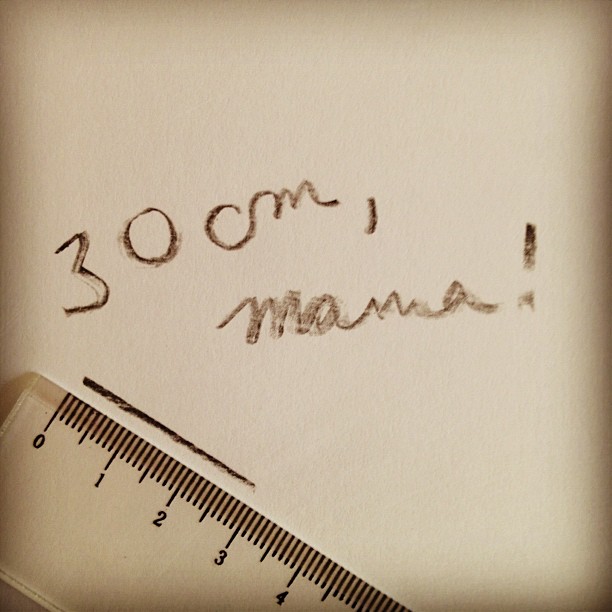 30 cm,
mama!
0 1 2 3 4